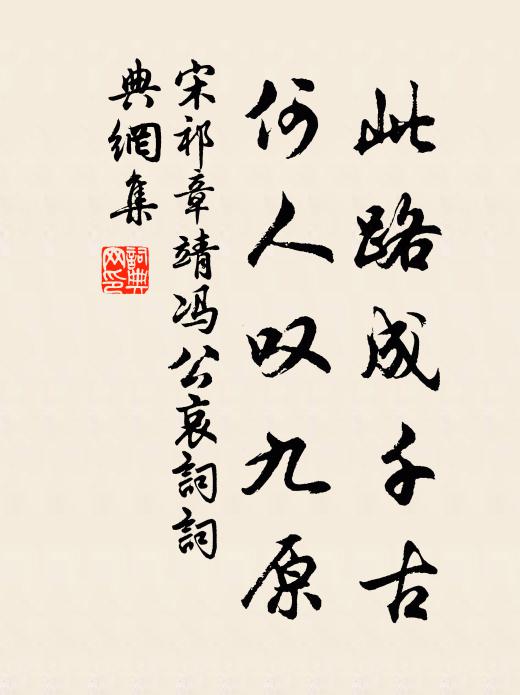 此路成千古
何人叹九原
宋祁章靖冯公哀詞詞
典網集
詞典
网印